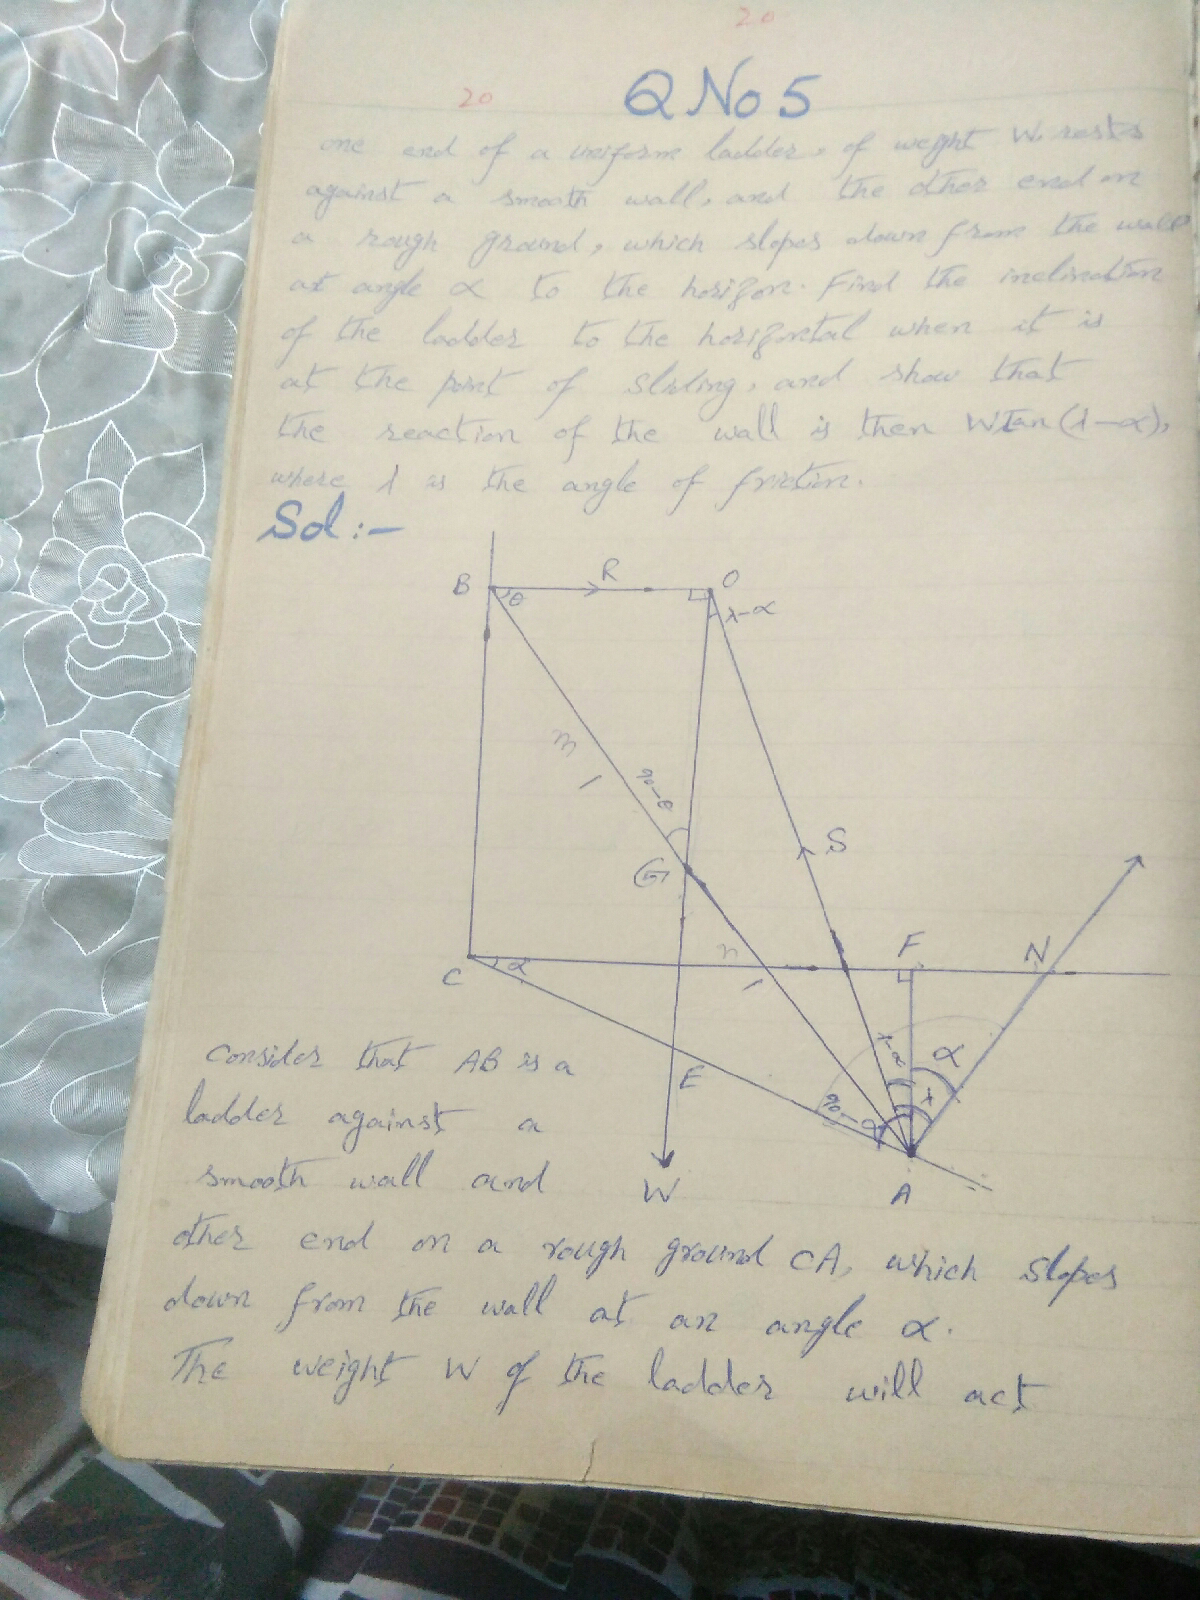 20
20
Q No 5
one end of a uniform ladder, of weight W, rests
against a smooth wall, and the other end on
a rough ground, which slopes down from the wall
at angle α to the horizon. Find the inclination
of the ladder to the horizontal when it is
at the point of sliding, and show that
the reaction of the wall is then W tan (λ-α),
where λ is the angle of friction.
Sol :-
B R O
θ λ-α
m
1
90-θ
S
G
F
N
n
C α
1
λ-α α
λ
E
90-α
W
A
consider that AB is a
ladder against a
smooth wall and
other end on a rough ground CA, which slopes
down from the wall at an angle α.
The weight W of the ladder will act